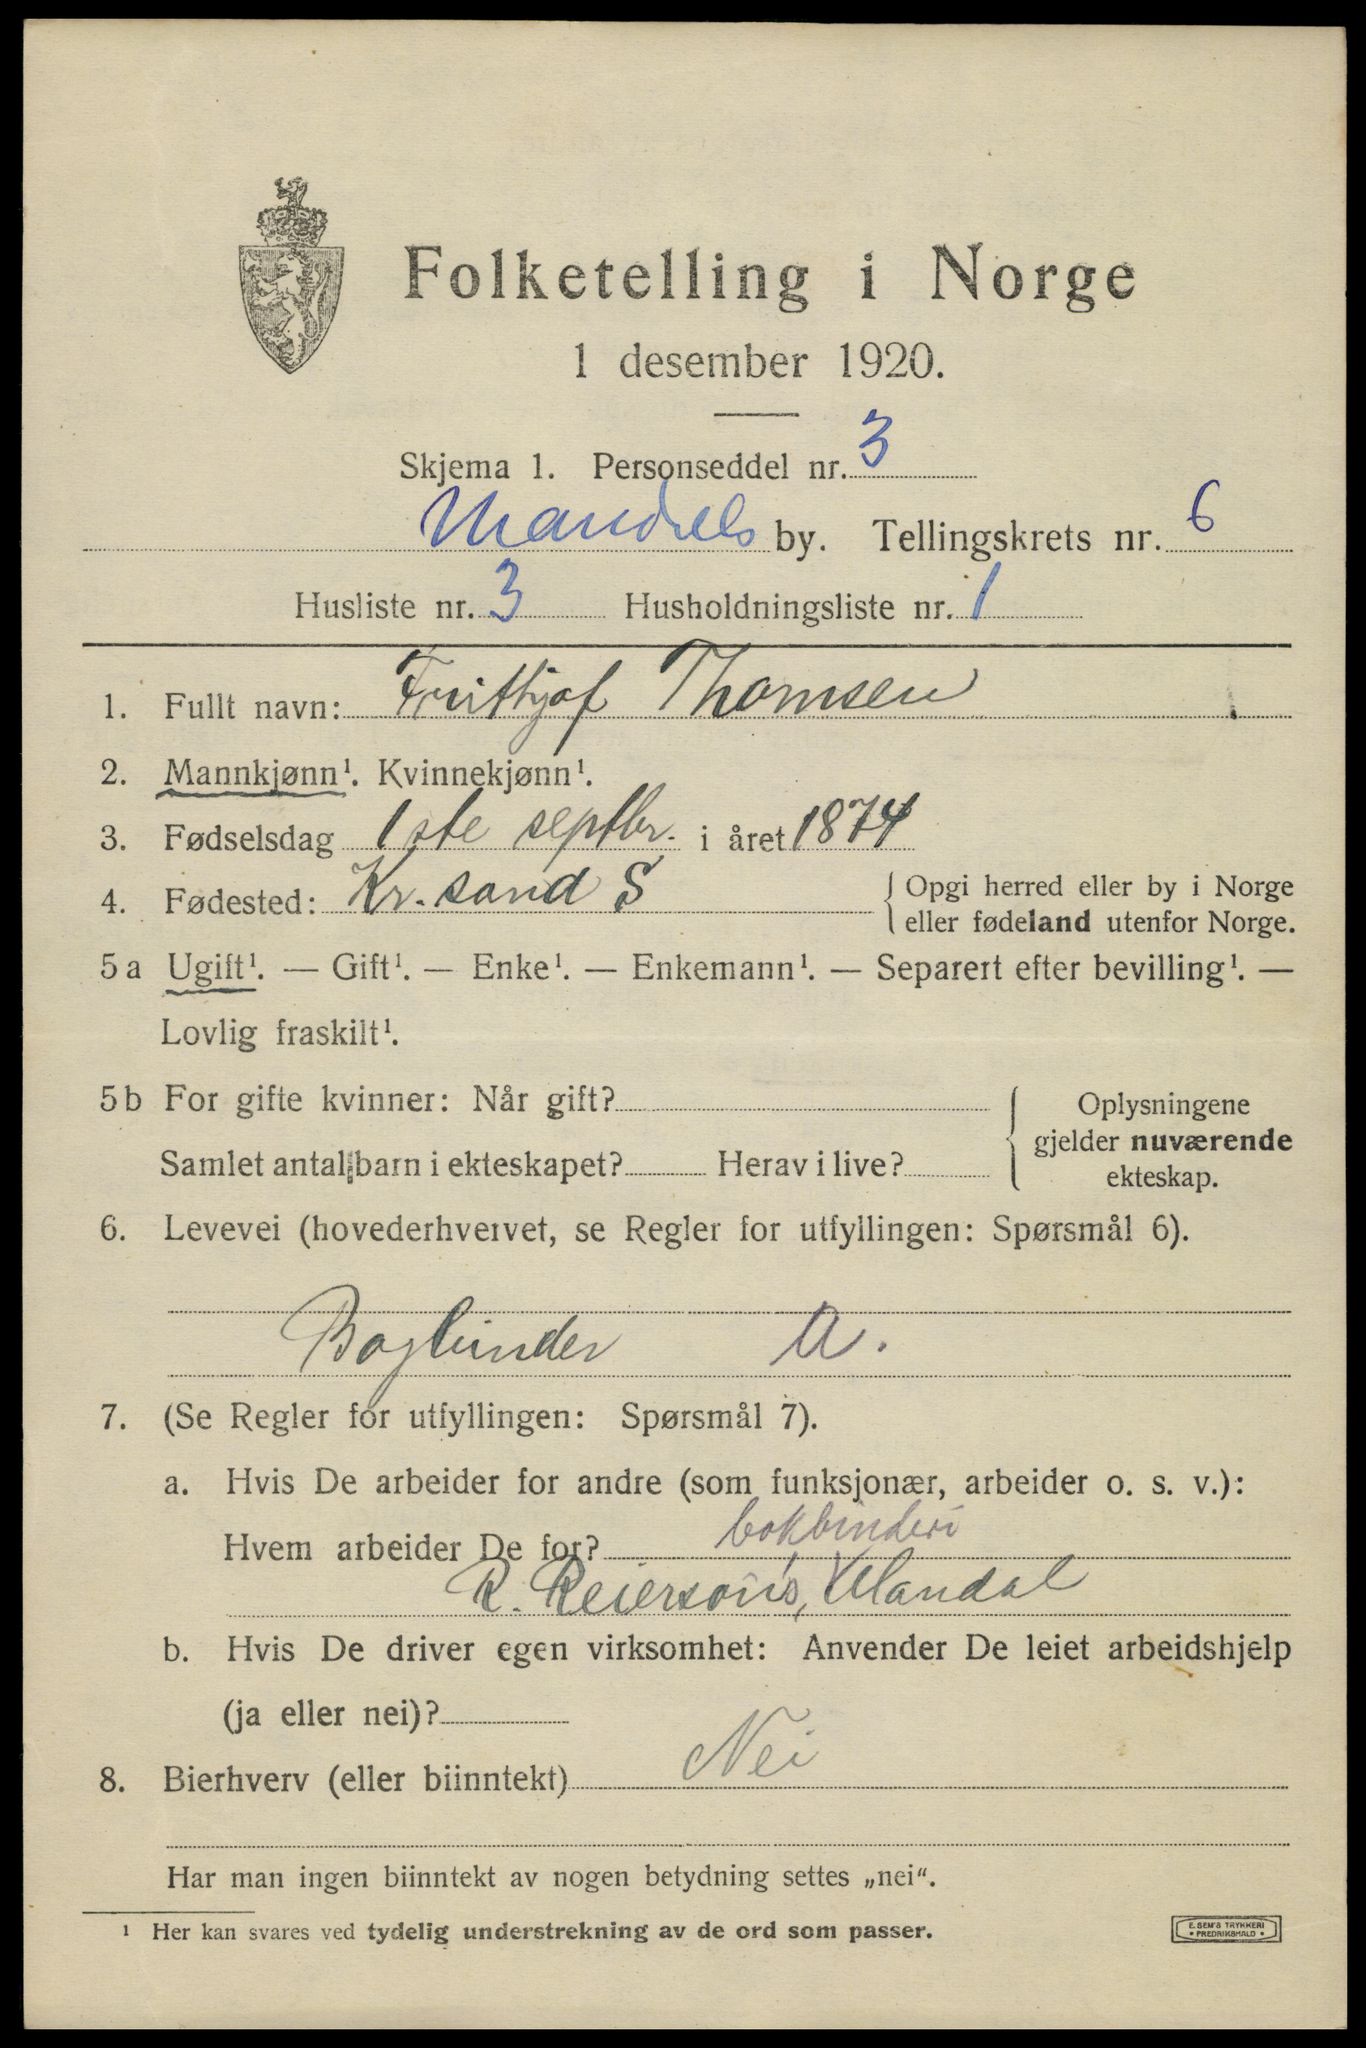 Folketelling i Norge
1 desember 1920.
Skjema 1. Personseddel nr. 3
Mandals by. Tellingskrets nr. 6
Husliste nr. 3 Husholdningsliste nr. 1
1. Fullt navn: Frithjof Thomsen
2. Mannkjønn¹. Kvinnekjønn¹.
3. Fødselsdag 1ste septbr. i året 1874
4. Fødested: Kr.sand S { Opgi herred eller by i Norge
eller fødeland utenfor Norge.
5 a Ugift¹. — Gift¹. — Enke¹. — Enkemann¹. — Separert efter bevilling¹. —
Lovlig fraskilt¹.
5 b For gifte kvinner: Når gift?
Samlet antal barn i ekteskapet? Herav i live?
Oplysningene
gjelder nuværende
ekteskap.
6. Levevei (hovederhvervet, se Regler for utfyllingen: Spørsmål 6).
Bogbinder A.
7. (Se Regler for utfyllingen: Spørsmål 7).
a. Hvis De arbeider for andre (som funksjonær, arbeider o. s. v.):
Hvem arbeider De for? bokbinderi
R. Reierson's, Mandal
b. Hvis De driver egen virksomhet: Anvender De leiet arbeidshjelp
(ja eller nei)?
8. Bierhverv (eller biinntekt) Nei
Har man ingen biinntekt av nogen betydning settes „nei“.
¹ Her kan svares ved tydelig understrekning av de ord som passer.
E. SEM'S TRYKKERI
• FREDRIKSHALD •